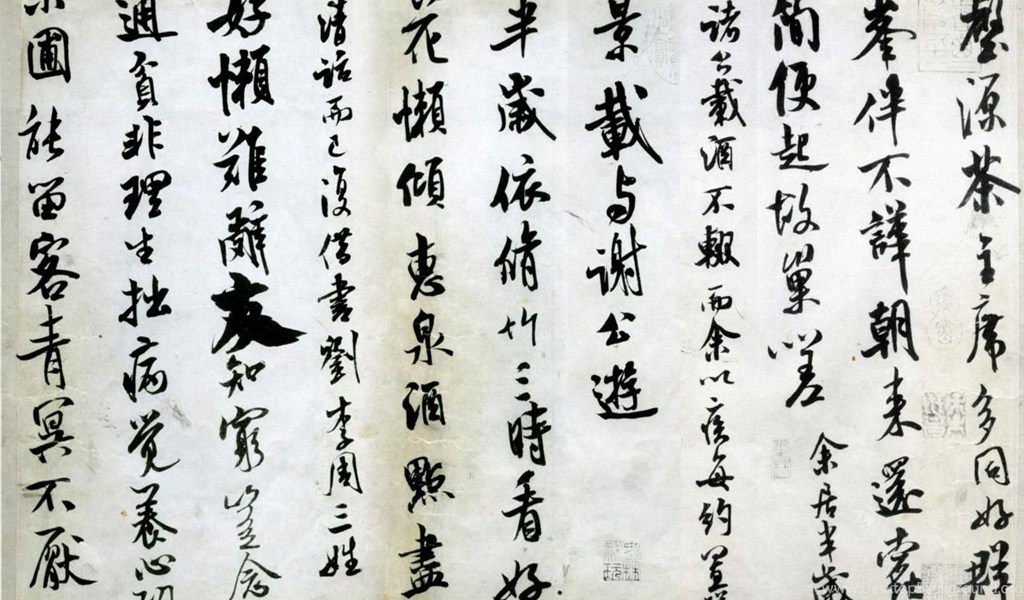 壑源茶主席多同好群
峯伴不譁朝来還蠹
簡便起故巢嗟
余居半歲
諸公載酒不輟而余以疾每約置
景載与謝公遊
半歲依脩竹三時看好
花懶傾惠泉酒點盡
清話而已復借書劉李周三姓
好懶難辭友知窮豈念
通貧非理生拙病覺養心功
圃能留客青冥不厭